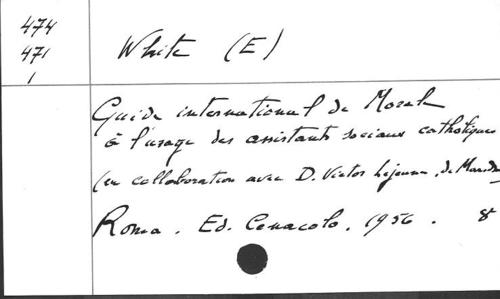 474
471
1
White (E)
Guide international de Morale
à l'usage des assistants sociaux catholiques
(en collaboration avec D. Victor Lejeune, de
Roma. Ed. Cenacolo. 1956. 8°